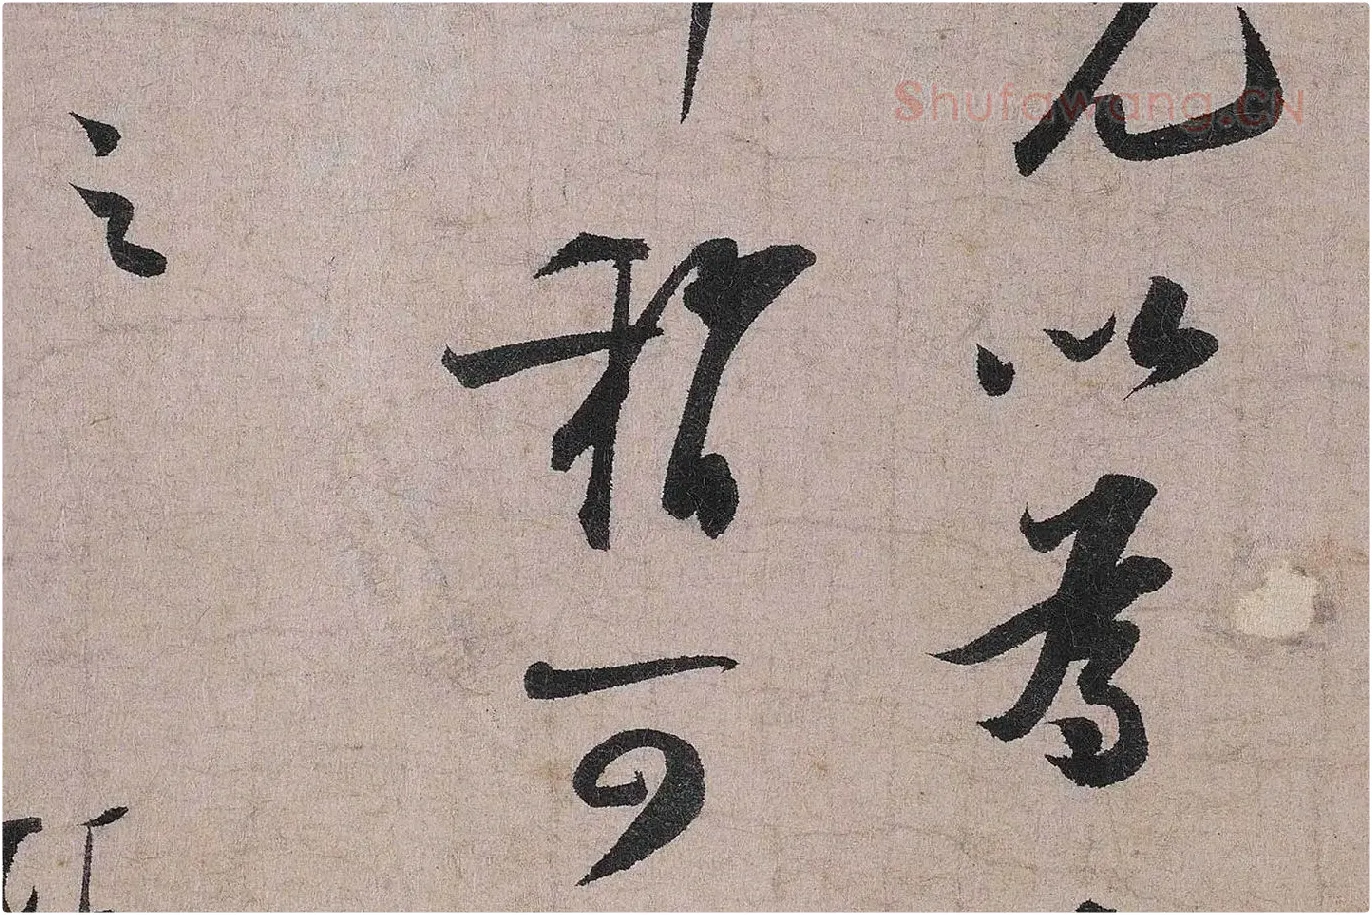 Shufawang.CN
以為
稍可
之